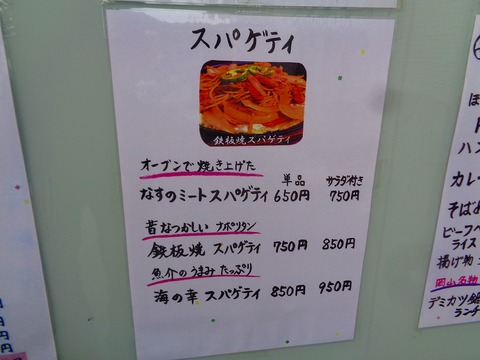 スパゲティ
鉄板焼スパゲティ
オーブンで焼き上げた
単品 サラダ付き
なすのミートスパゲティ 650円 750円
昔なつかしい ナポリタン
鉄板焼 スパゲティ 750円 850円
魚介のうまみ たっぷり
海の幸 スパゲティ 850円 950円
ハン
カレー
そばめ
ビーフペ
ライス
揚げ物
岡山名物
デミカツ鍋
ランチ
円
円
円